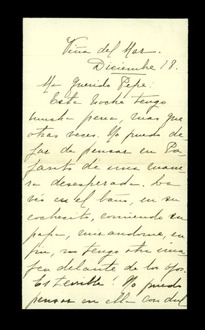 Viña del Mar.
Diciembre 18.
Mi Querido Pepe:
Esta noche tengo
mucha pena, mas que
otras veces. No puedo de
jar de pensar en
de una mane
ra desesperada. La
veo en el baño, en su
cochesito, comiendo su
papa, en
fin, no tengo otra ima
jen delante de los ojos.
Es terrible! No puedo
pensar en ella con dul